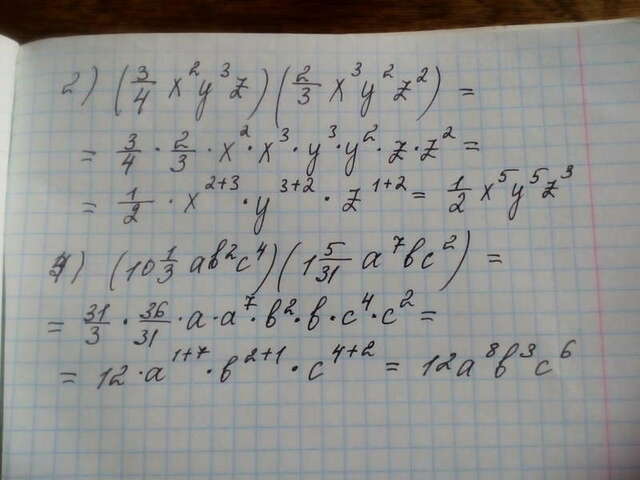 2) (3/4 x²y³z)(2/3 x³y²z²) =
= 3/4 · 2/3 · x² · x³ · y³ · y² · z · z² =
= 1/2 · x²⁺³ · y³⁺² · z¹⁺² = 1/2 x⁵y⁵z³
4) (10 1/3 ab²c⁴)(1 5/31 a⁷bc²) =
= 31/3 · 36/31 · a · a⁷ · b² · b · c⁴ · c² =
= 12 · a¹⁺⁷ · b²⁺¹ · c⁴⁺² = 12a⁸b³c⁶